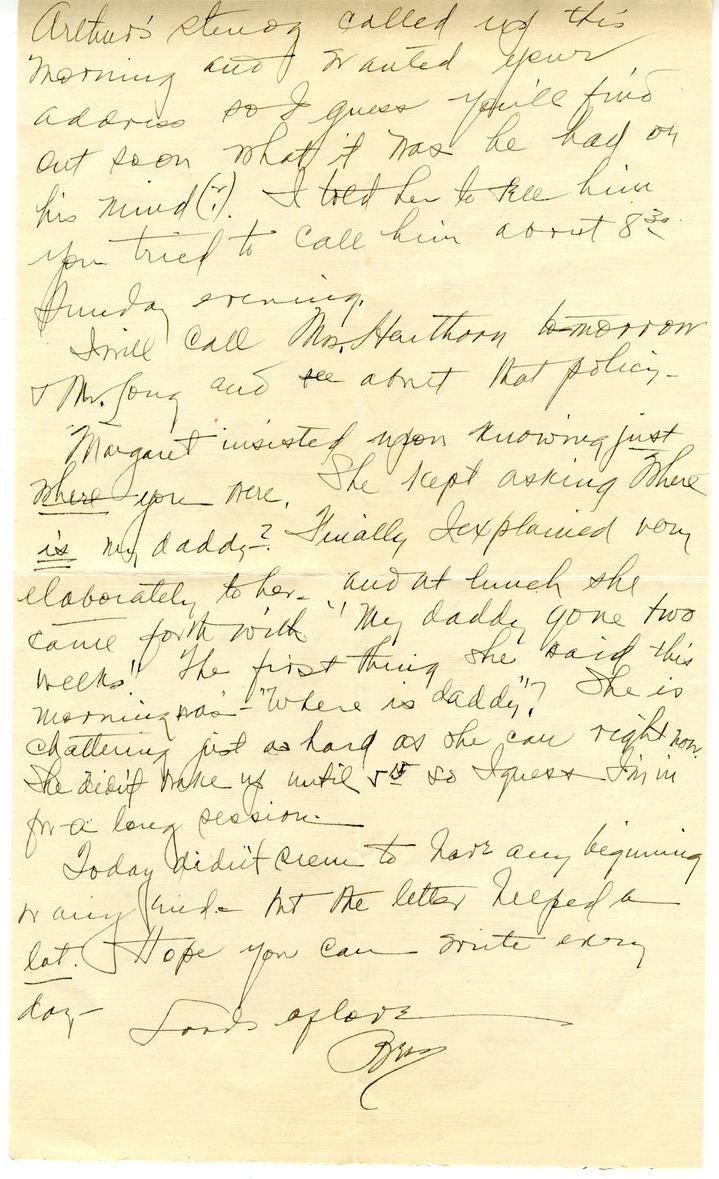 Arthur's stenog called up this
morning and wanted your
address so I guess you'll find
out soon what it was he had on
his mind(?). I told her to tell him
you tried to call him about 8 30
Sunday evening.
I will call Mrs. Hawthorn tomorrow
& Mr. Long and see about that policy-
Margaret insisted upon knowing just
where you were. She kept asking Where
is my daddy? Finally I explained very
elaborately to her- and at lunch she
came forth with "My daddy gone two
weeks." The first thing she said this
morning was - "Where is daddy"? She is
chattering just as hard as she can right now.
She didn't wake up until 5 15 so I guess I'm in
for a long session.
Today didn't seem to have any beginning
or any end- but the letter helped a
lot. Hope you can write every
day-
Loads of love
Bess